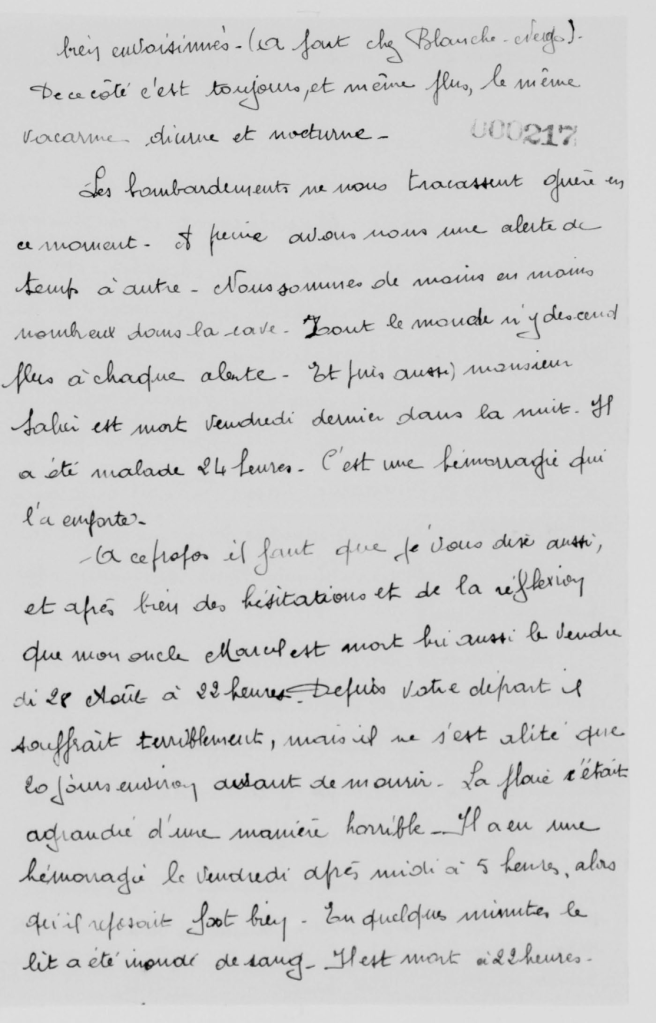 bien envoisinnés - (A part chez Blanche-Neige).
De ce côté c'est toujours, et même plus, le même
vacarme diurne et nocturne -
000217
Les bombardements ne nous tracassent guère en
ce moment - A peine avons nous une alerte de
temps à autre - Nous sommes de moins en moins
nombreux dans la cave - Tout le monde n'y descend
plus à chaque alerte - Et puis aussi, monsieur
est mort vendredi dernier dans la nuit. Il
a été malade 24 heures. C'est une hémorragie qui
l'a emporté.
- A ce propos il faut que je vous dise aussi,
et après bien des hésitations et de la réflexion
que mon oncle Marcel est mort lui aussi le vendre
di 28 Août à 22 heures. Depuis votre départ il
souffrait terriblement, mais il ne s'est alité que
20 jours environ avant de mourir. La plaie s'était
agrandie d'une manière horrible - Il a eu une
hémorragie le vendredi après midi à 5 heures, alors
qu'il reposait fort bien. En quelques minutes le
lit a été inondé de sang - Il est mort à 22 heures.